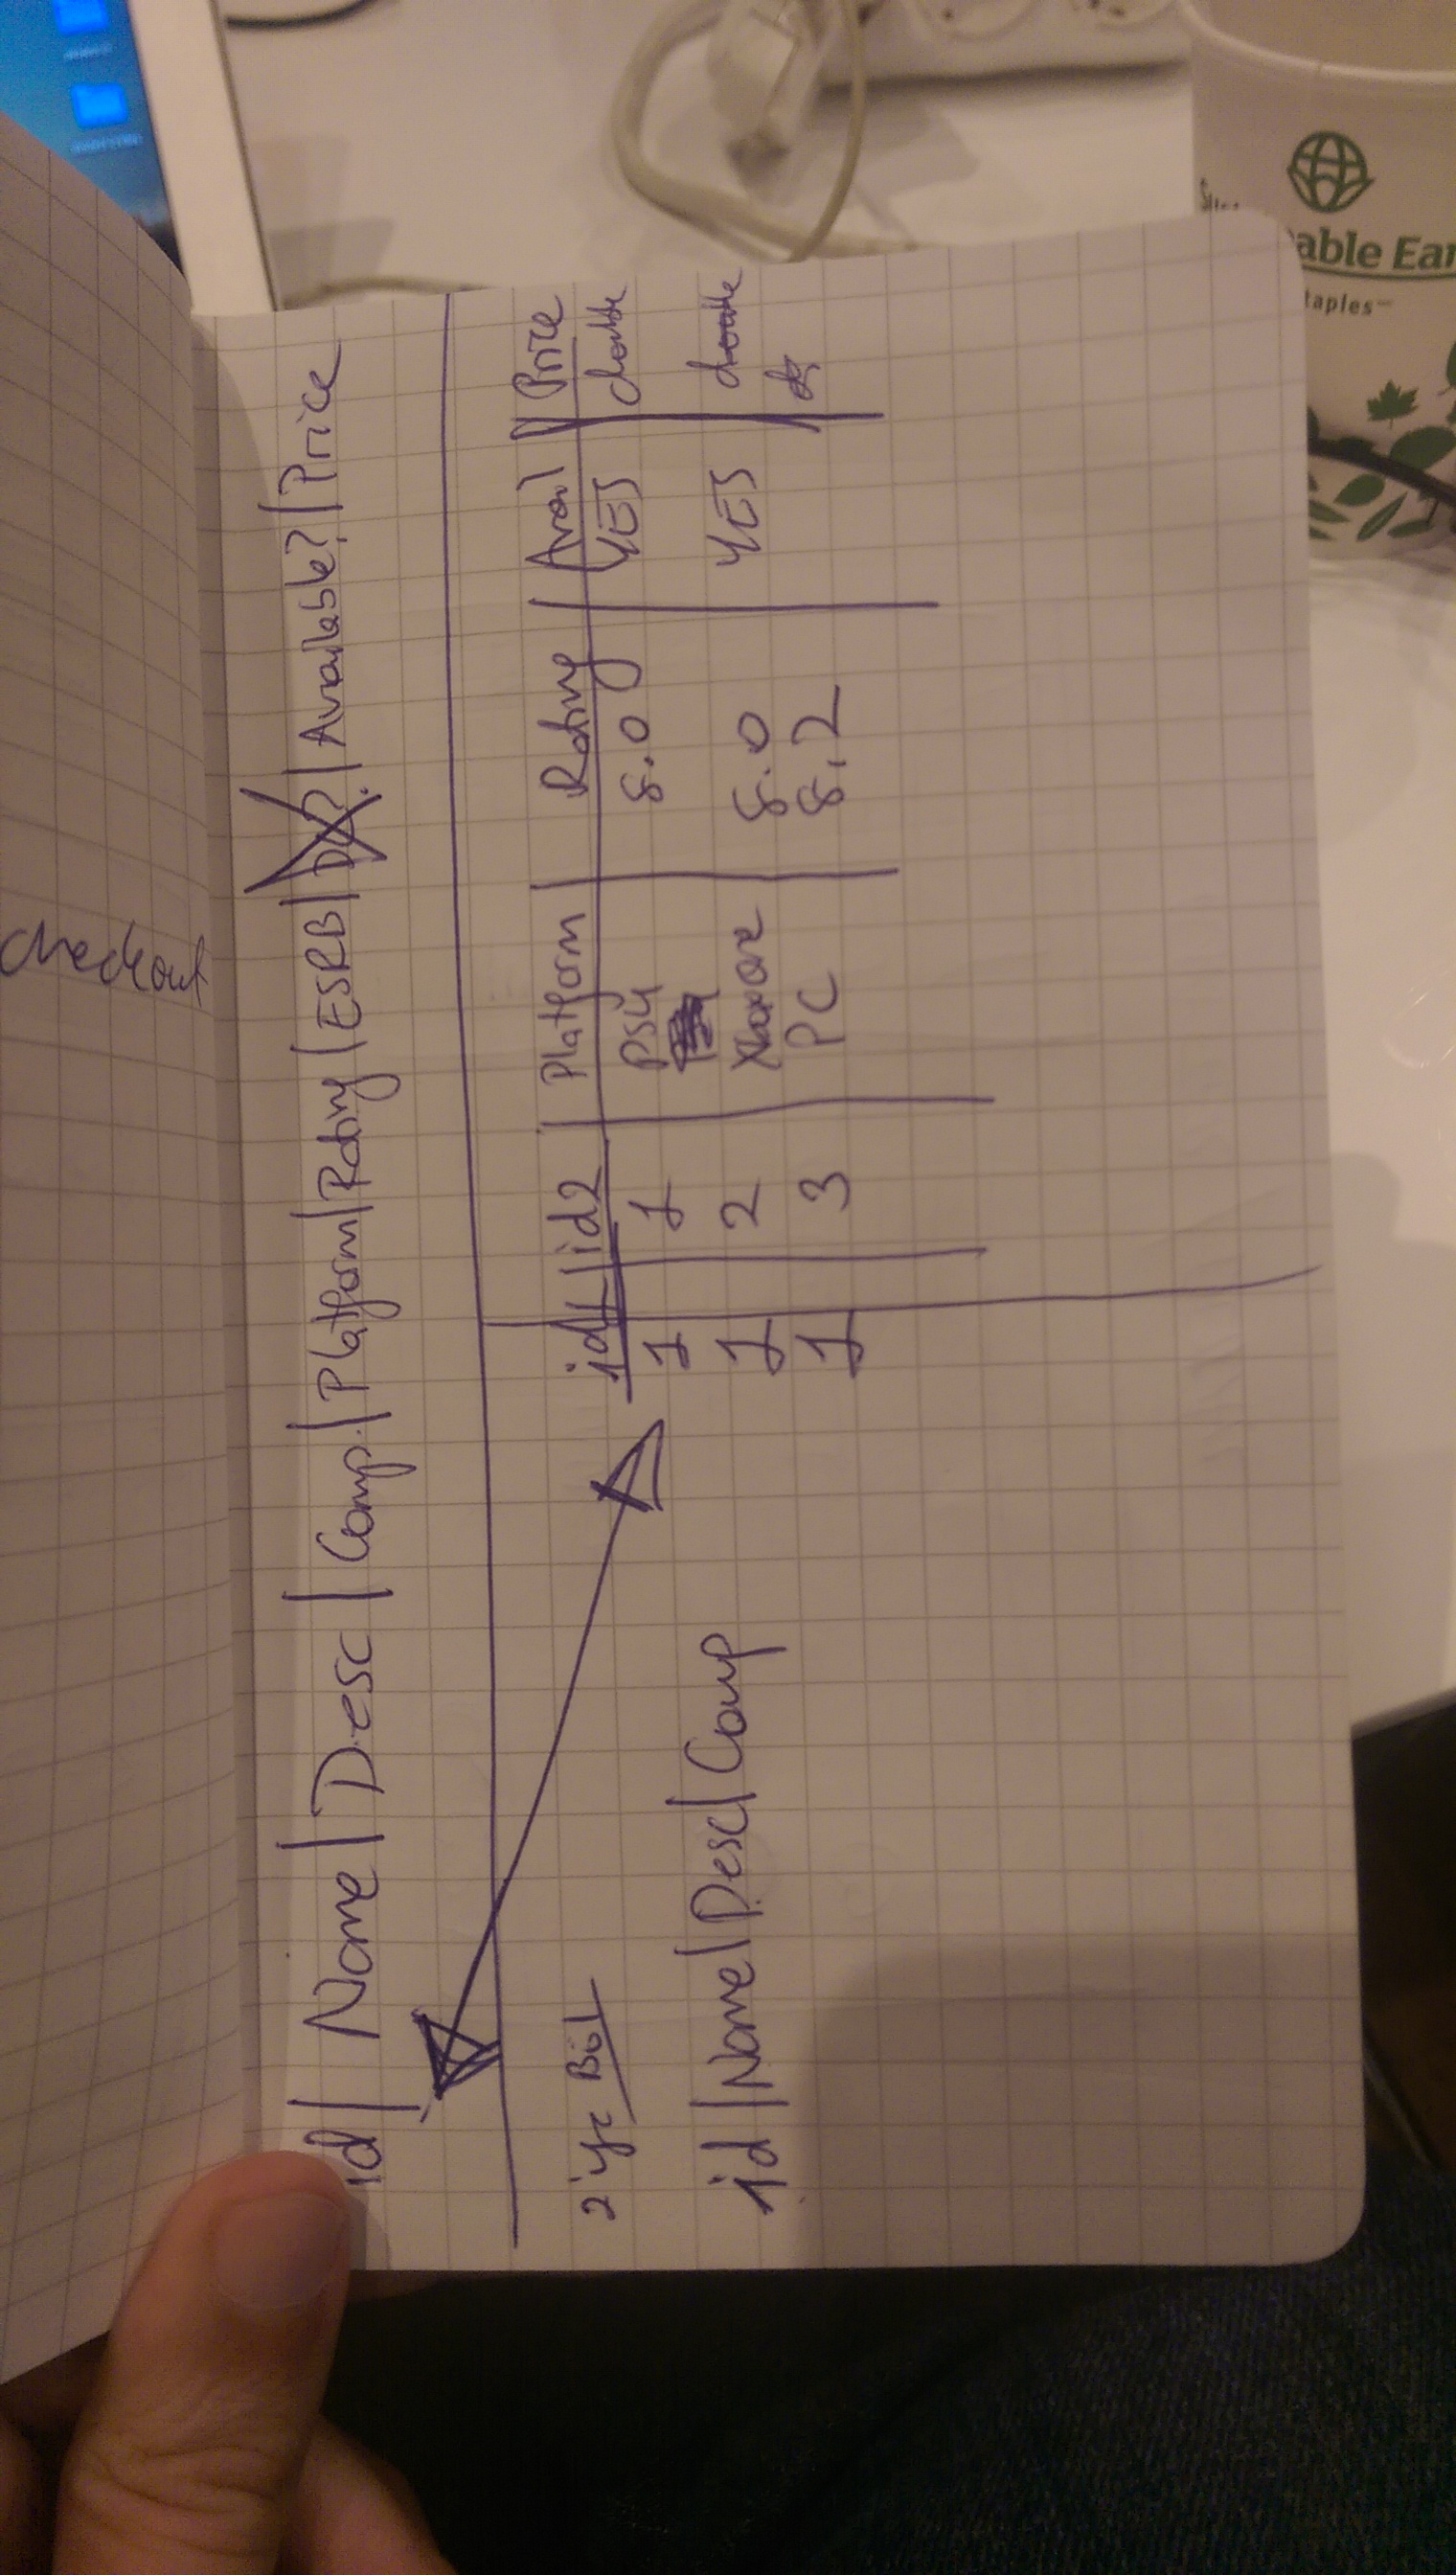 checkout
id | Name | Desc | Comp. | Platform | Rating | ESRB | | Available? | Price
2'ye Böl
id | Name | Desc | Comp
id | id2 | Platform | Rating | Avail | Price
1 | 1 | PS4 | 8.0 | YES | double
1 | 2 | Xbox One | 8.0 | YES | double
1 | 3 | PC | 8.2
able Ear
taples